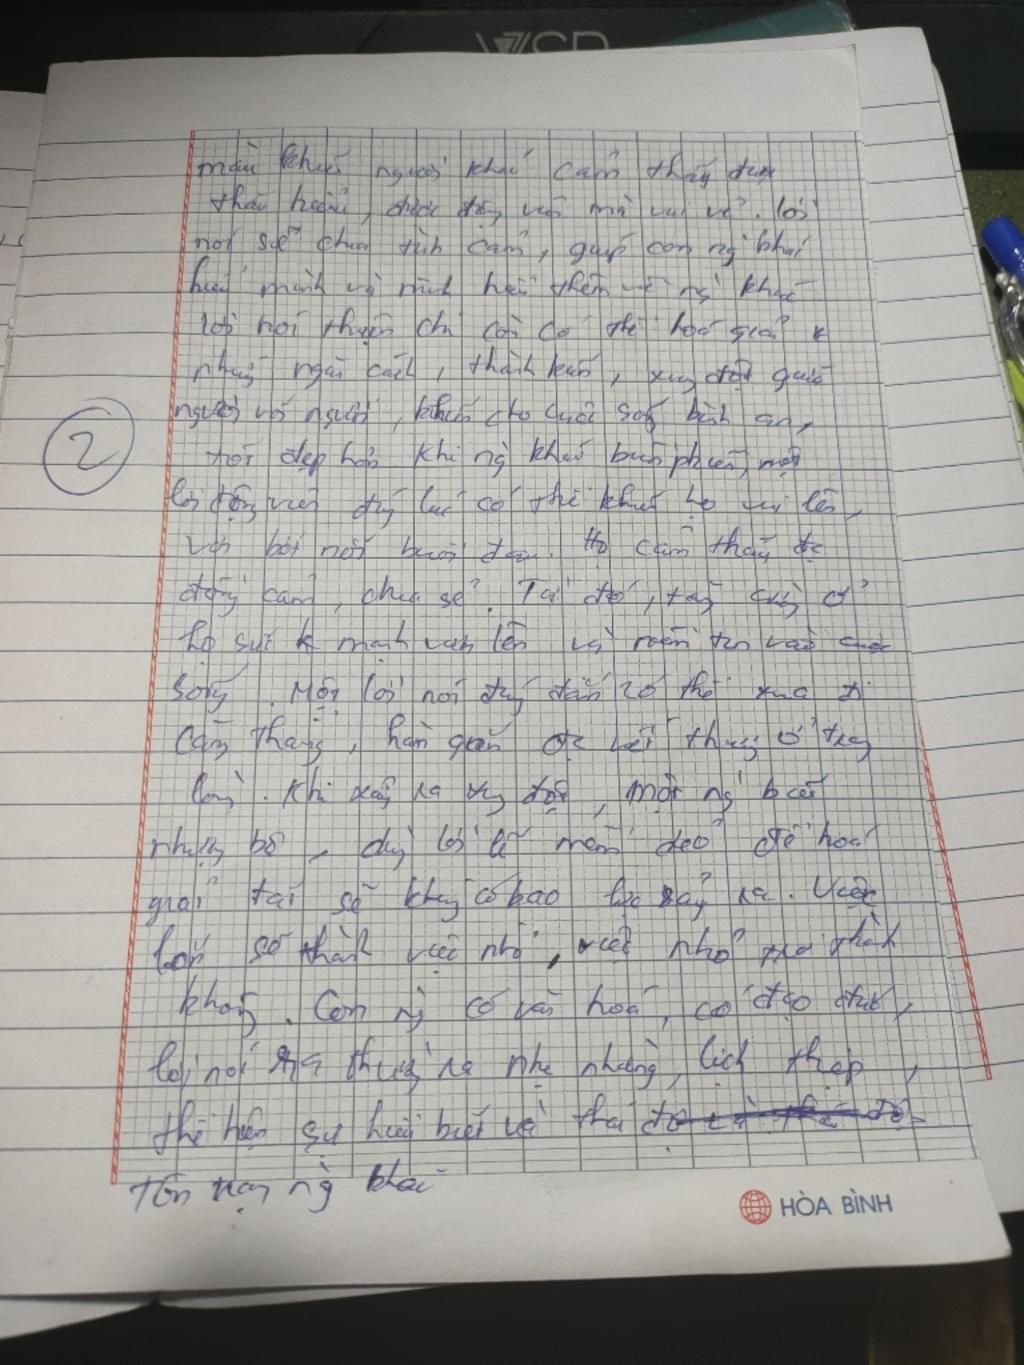 khiến người khác cảm thấy được
thấu hiểu, được động viên mà vui vẻ. Lời
nói sẽ chứa tình cảm, giúp con ng khác
hiểu mình và mình hiểu thêm về ng khác
lời nói thiện chí còn có thể hoá giải
những ngăn cách, thành kiến, xung đột giữa
người với người, khiến cho cuộc sống bình an,
tốt đẹp hơn khi ng khác buồn phiền, một
lời động viên đúng lúc có thể khiến họ vui lên,
vơi bớt nỗi buồn đau. Họ cảm thấy đc
đồng cảm, chia sẻ. Từ đó, ở
họ sức mạnh vươn lên và niềm tin vào
sống. Một lời nói đúng đắn có thể xua đi
căng thẳng, hàn gắn đc vết thương ở trong
lòng. Khi xảy ra xung đột, một ng biết
nhường bộ, dùng lời lẽ mềm dẻo để hoá
giải tai sẽ không có bạo lực xảy ra. Việc
lớn sẽ thành việc nhỏ, việc nhỏ trở thành
không. Con ng có văn hoá, có đạo đức,
lời nói thường ra nhẹ nhàng, lịch thiệp,
thể hiện sự hiểu biết và thái độ
tôn trọng ng khác
2
HÒA BÌNH